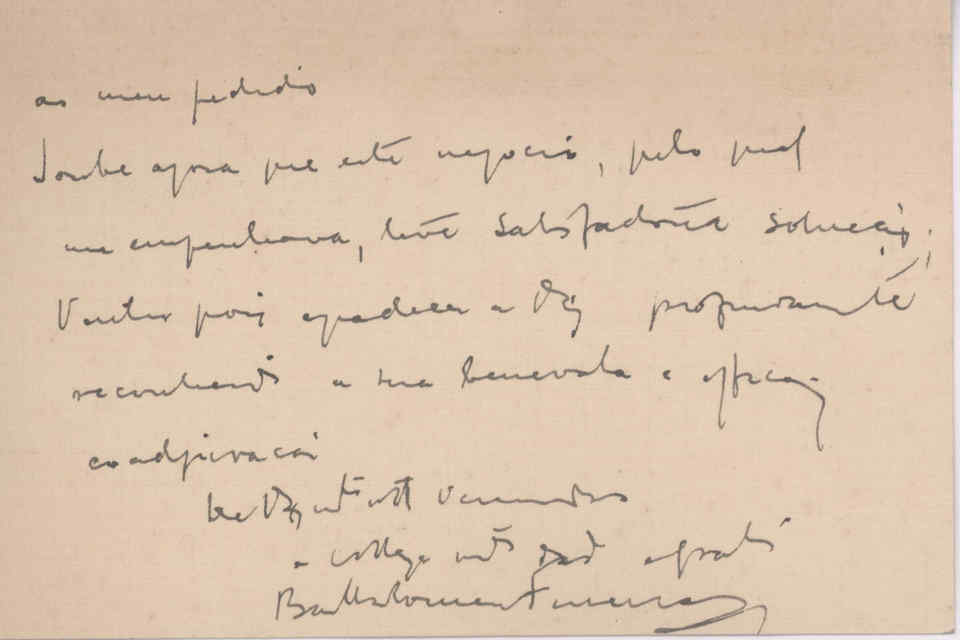 ao meu pedido
Soube agora que este negocio, pelo qual
me empenhava, teve satisfactoria solução;
Venho pois agradecer a V. Exª profundamente
reconhecido a sua benevola e efficaz
coadjuvação
De V. Exª mtº attº venerador
e collega mtº obgdº e grato